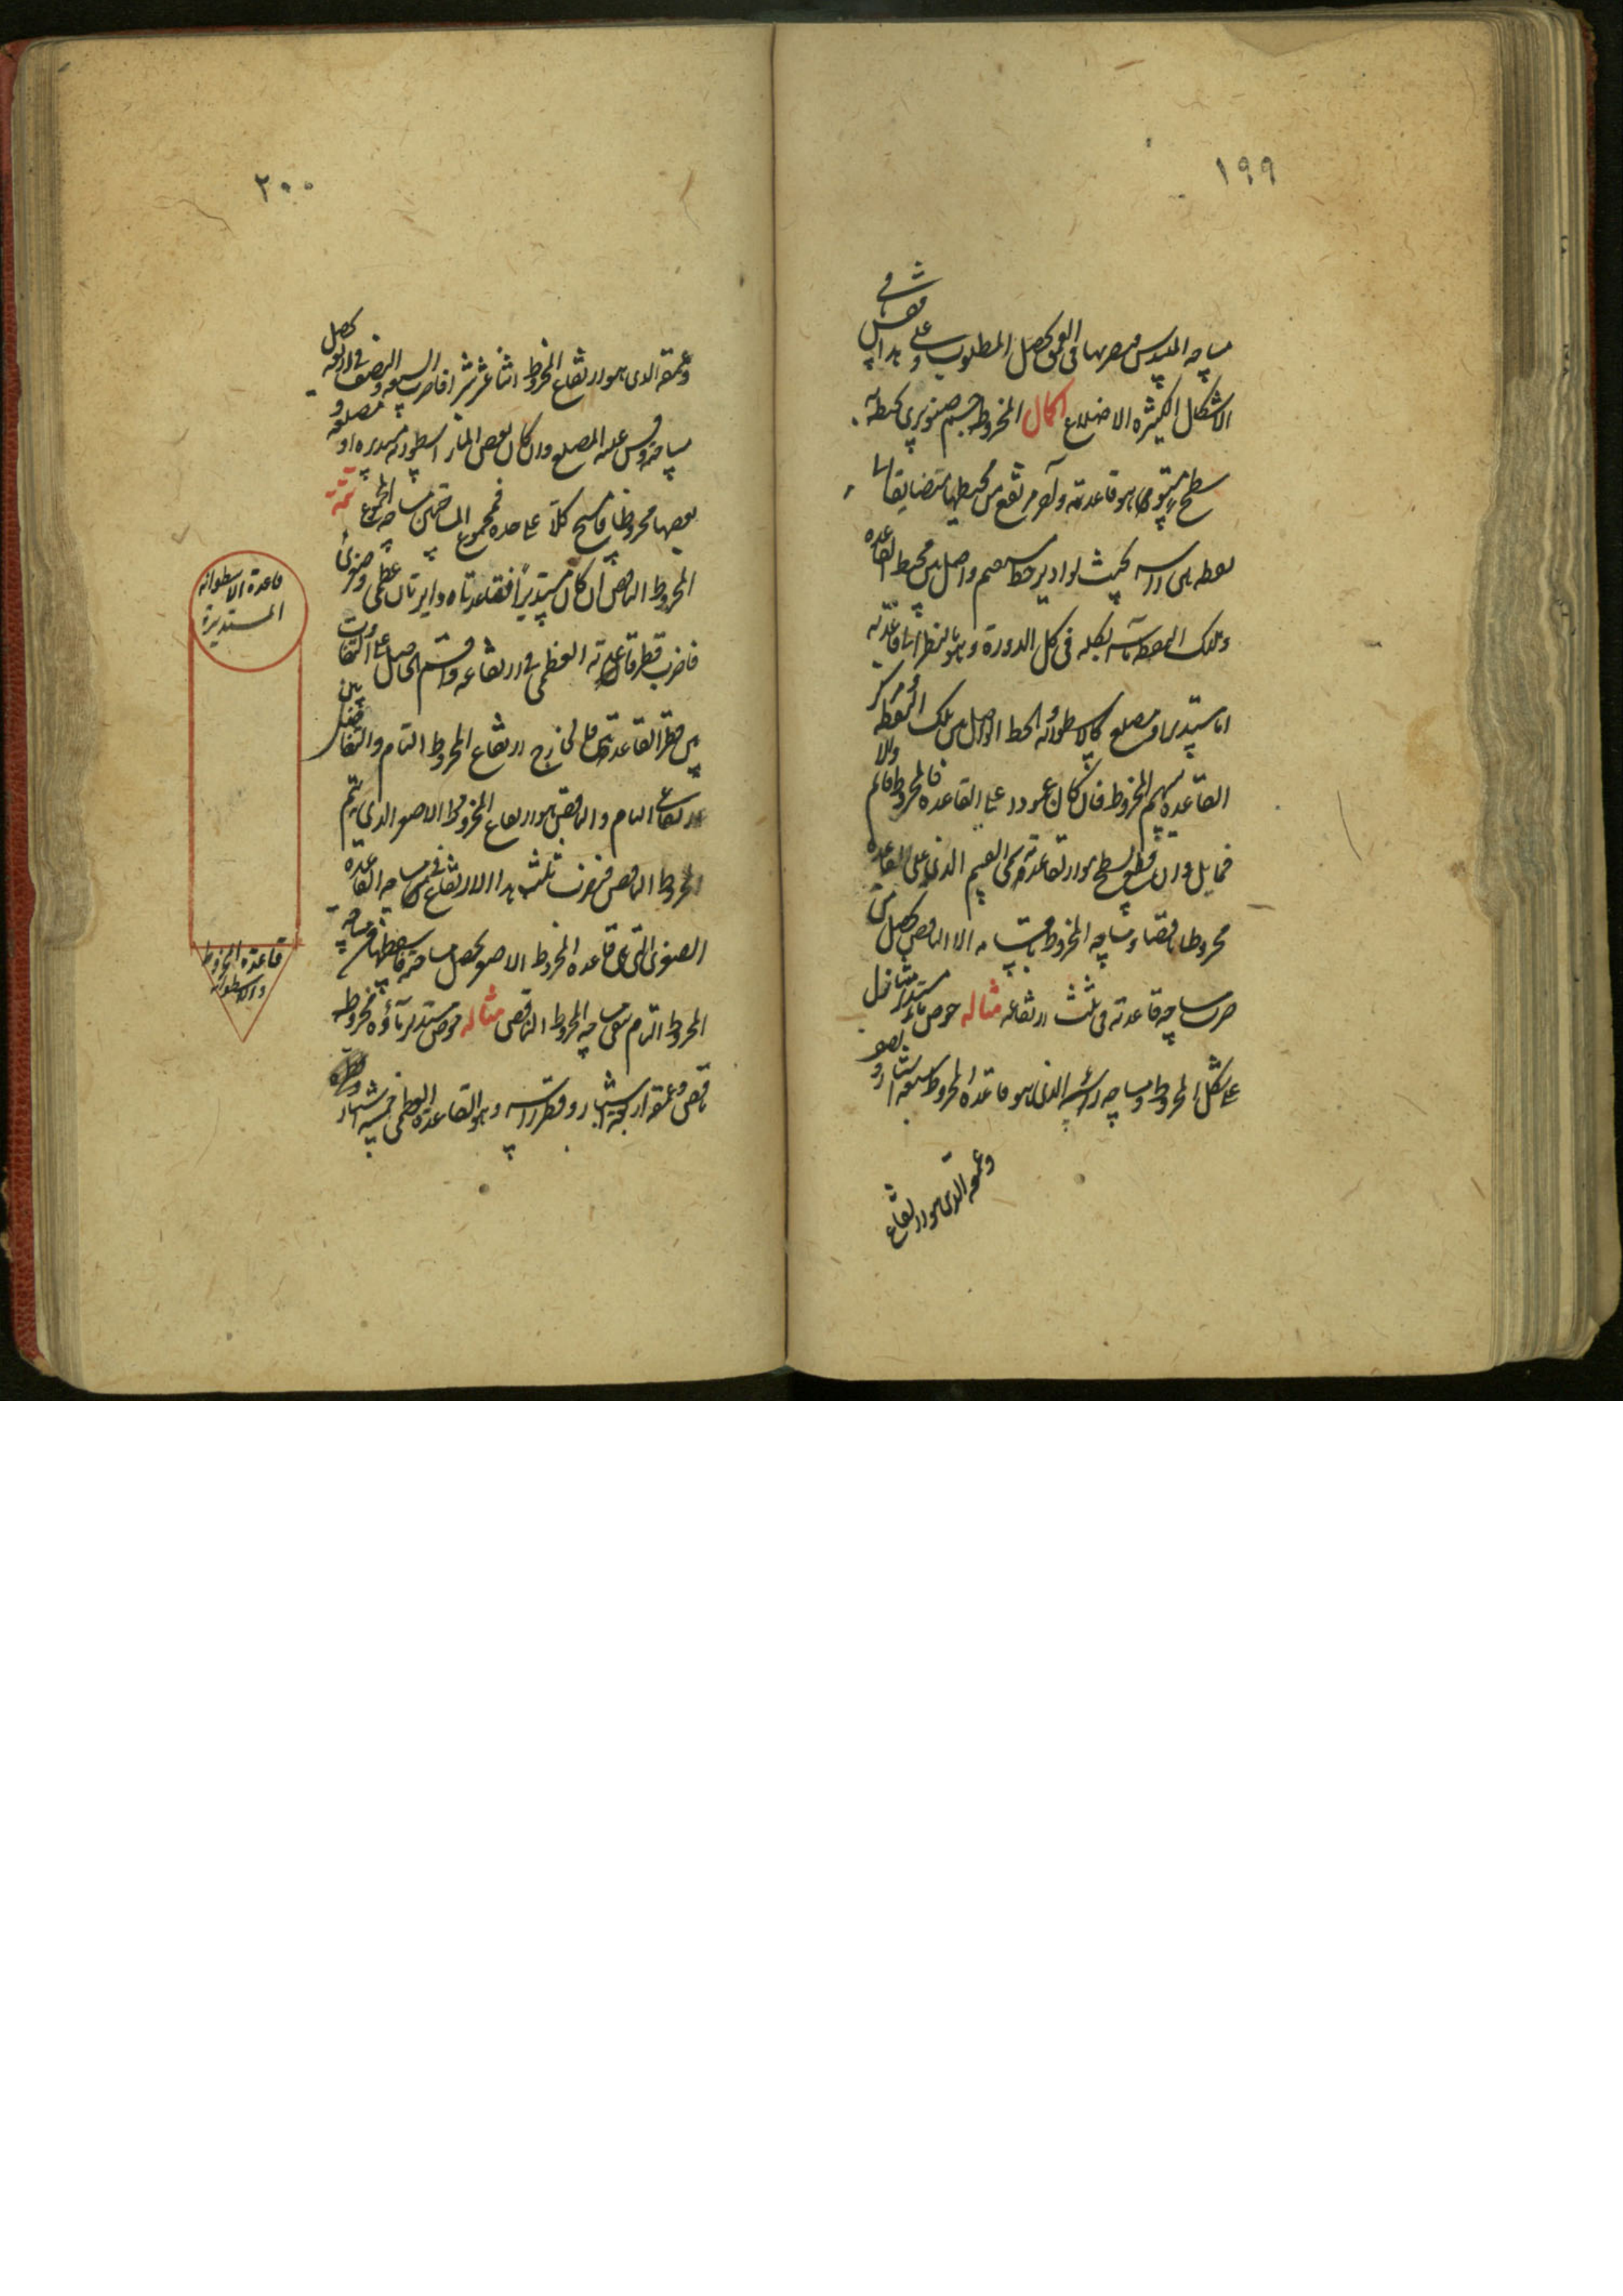 ١٩٩
مساحة المسدس فضربها فى العمق يحصل المطلوب وعلى هذا فقس فى
الاشكال الكثيرة الاضلاع اكمال المخروط جسم صنوبرى يحيط به
سطح مستوى هو قاعدته وآخر مرتفع من محيطها متضايقا الى
نقطة هى راسه بحيث لو ادير خط مستقيم واصل بين محيط القاعدة
وتلك النقطة ماسه بكله فى كل الدورة وهو بالنظر الى قاعدته
اما مستدير او مضلع كالاسطوانة والخط الواصل بين تلك النقطة ومركز
القاعدة سهم المخروط فان كان عمودا على القاعدة فالمخروط قائم والا
فمايل وان قطع بسطح مواز لقاعدته سمى القسم الذى يلى القاعدة
مخروطا ناقصا ومساحة المخروط باقسامه الا الناقص يحصل من
ضرب مساحة قاعدته فى ثلث ارتفاعه مثاله حوض مستدير
على شكل المخروط ومساحة راسه الذى هو قاعدة المخروط سبعة اشبار ونصف
وعمقه الذى هو ارتفاع
٢٠٠
وعمقه الذى هو ارتفاع المخروط اثنا عشر شبرا فاضرب السبعة والنصف فى اربعة يحصل
مساحته وقس عليه المضلع وان كان بعض البئر اسطوانة مستديرة او مضلعة و
بعضها مخروطا فامسح كلا على حدة فمجموع المساحتين مساحة المجموع تتمة
المخروط الناقص ان كان مستديرا فقاعدتاه دايرتان عظمى وصغرى
فاضرب قطر قاعدته العظمى فى ارتفاعه واقسم الحاصل على التفاوت
بين قطر القاعدتين فالخارج ارتفاع المخروط التام والتفاضل بين
ارتفاعى التام والناقص هو ارتفاع المخروط الاصغر الذى يتم
المخروط الناقص فيضرب ثلث هذا الارتفاع فى مساحة القاعدة
الصغرى التى هى قاعدة المخروط الاصغر يحصل مساحته فاسقطها من مساحة
المخروط التام يبقى مساحة المخروط الناقص مثاله حوض مستدير ماؤه مخروط
ناقص وعمقه اربعة اشبار وقطر راسه وهو القاعدة العظمى خمسة اشبار
قاعدة الاسطوانة
المستديرة
قاعدة المخروط
والاسطوانة